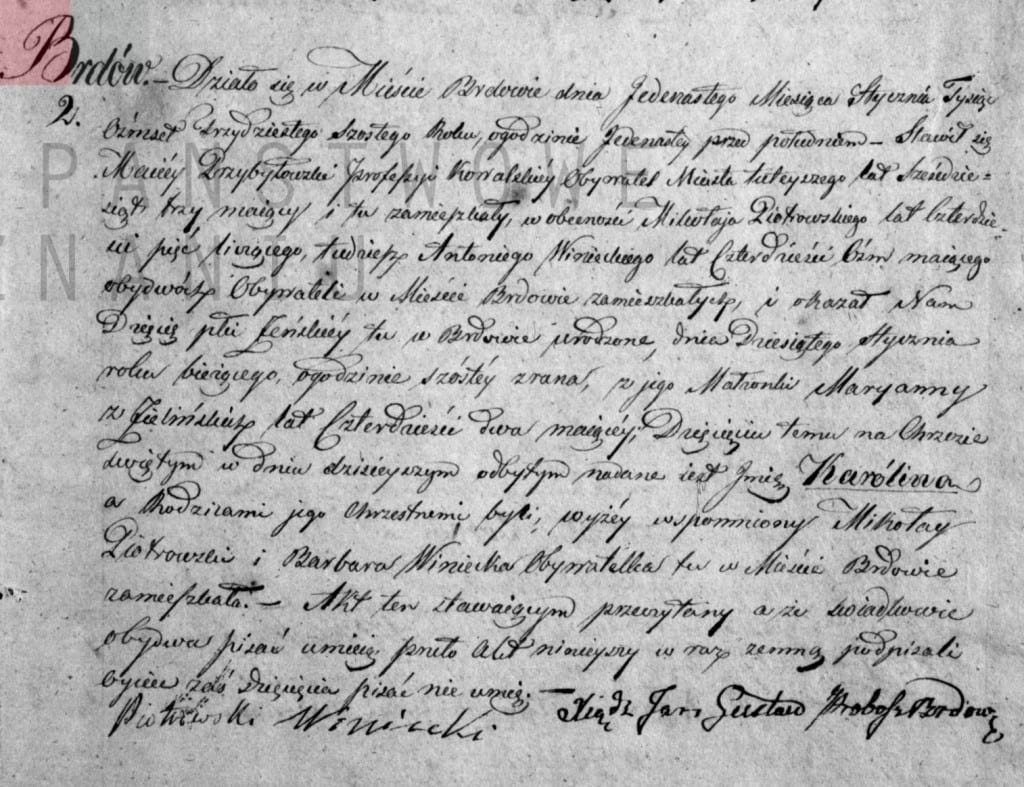 Brdów.– Działo się w Mieście Brdowie dnia Jedenastego Miesiąca Stycznia Tysiąc
2. Ośmset Trzydziestego Szostego Roku, o godzinie Jedenastey przed południem – Stawił się
PAŃSTWOWE
Maciéy Przybyłowski Professyi Kowalskiéy Obywatel Miasta tuteyszego lat Sześdzie=
siąt trzy maiący i tu zamieszkały, w obecności Mikołaja Piotrowskiego lat Czterdzie=
ści pięć liczącego, tudzież Antoniego Winieckiego lat Czterdzieści Ośm maiącego
obydwóch Obywateli w Mieście Brdowie zamieszkałych, i okazał Nam
Dziecię płci Żeńskiéy tu w Brdowie urodzone, dnia Dziesiątego Stycznia
roku bieżącego, o godzinie szóstéy zrana, z jego Małżonki Maryanny
z Zielińskich lat Czterdzieści dwa maiącéy; Dziecięciu temu na Chrzcie
świętym w dniu dzisieyszym odbytym nadane iest Jmię Karólina
a Rodzicami jego Chrzestnemi byli, wyżéy wspomniony Mikołay
Piotrowski i Barbara Winiecka Obywatelka tu w Mieście Brdowie
zamieszkała. – Akt ten stawaiącym przeczytany a że świadkowie
obydwa pisać umieią przeto Akt ninieyszy w raz zemną podpisali
oyciec zaś dziecięcia pisać nie umié. –
Piotrowski Winiecki Xiądz Jan Gustaw Probosz Brdow